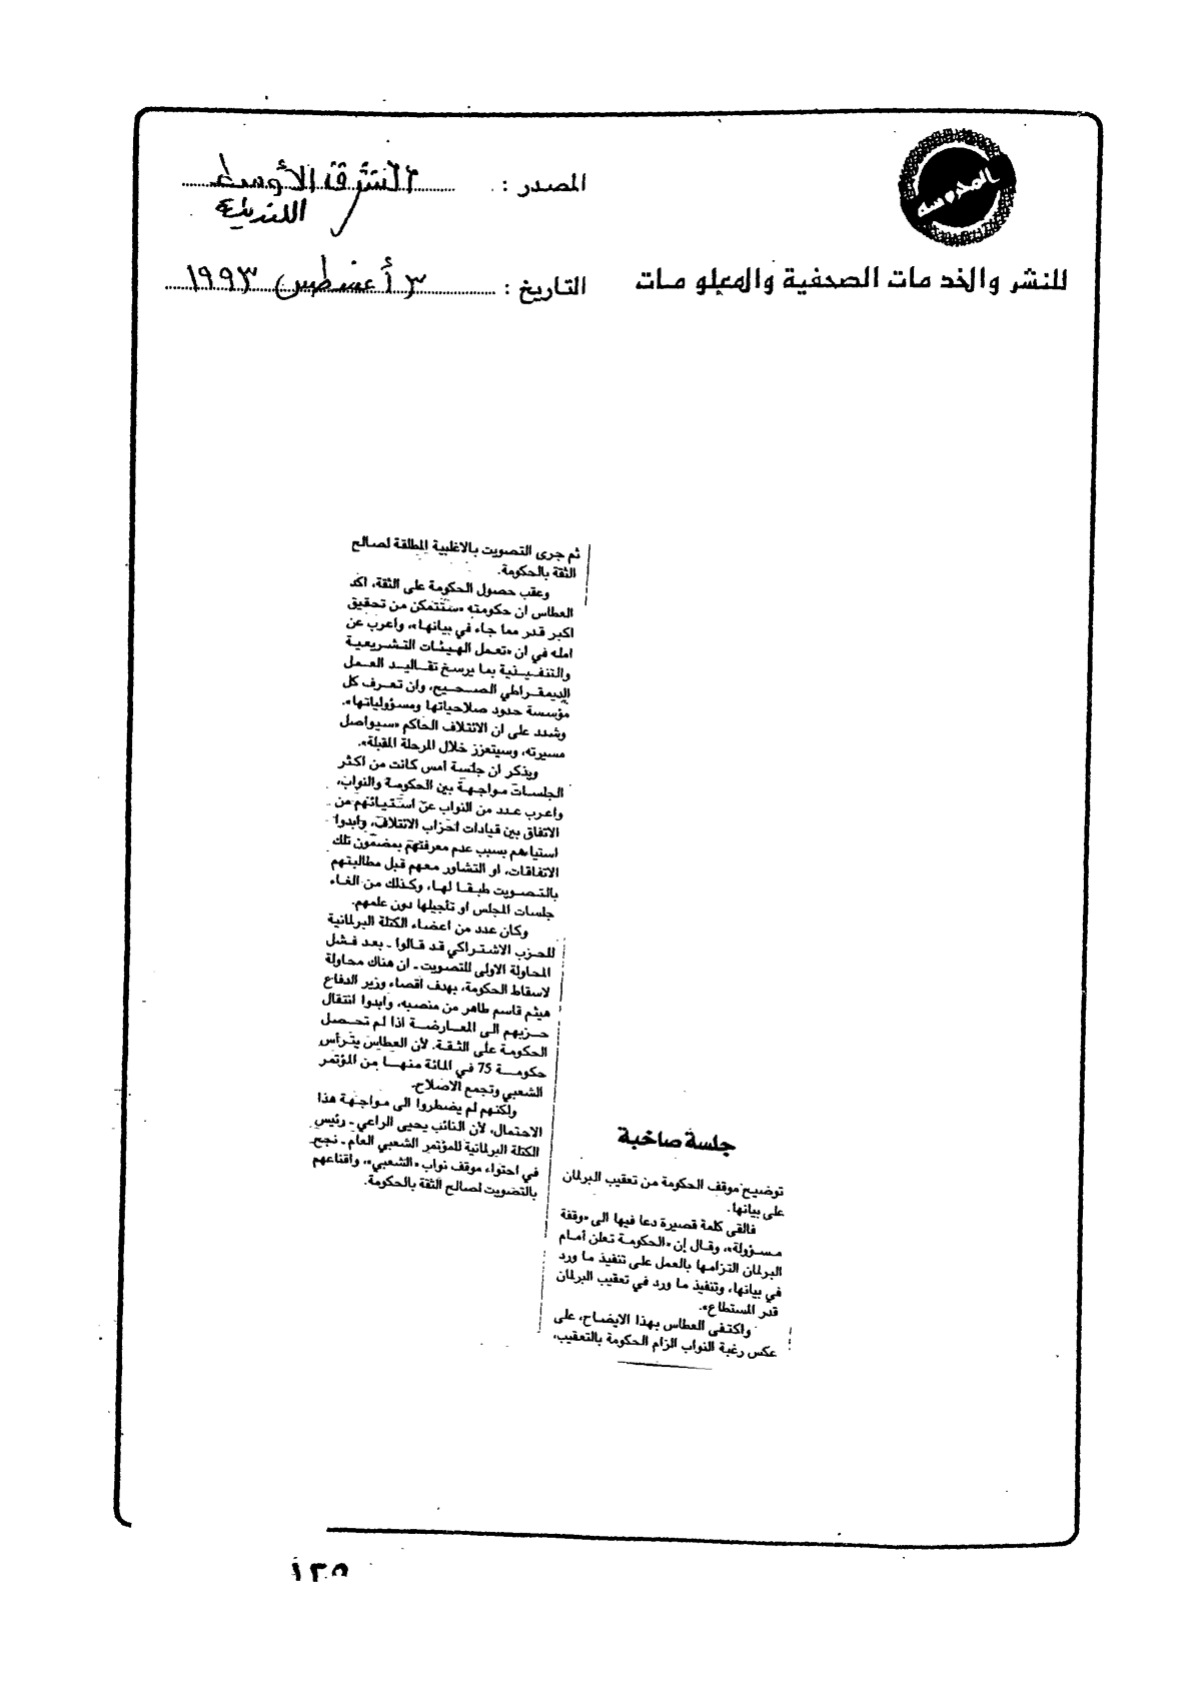 المحروسة
للنشر والخدمات الصحفية والمعلومات
المصدر : الشرق الأوسط
اللندنية
التاريخ : ٣ أغسطس ١٩٩٣
جلسة صاخبة
توضيح موقف الحكومة من تعقيب البرلمان
على بيانها.
فالقى كلمة قصيرة دعا فيها الى «وقفة
مسؤولة»، وقال إن «الحكومة تعلن أمام
البرلمان التزامها بالعمل على تنفيذ ما ورد
في بيانها، وتنفيذ ما ورد في تعقيب البرلمان
قدر المستطاع».
واكتفى العطاس بهذا الايضاح، على
عكس رغبة النواب الزام الحكومة بالتعقيب،
ثم جرى التصويت بالاغلبية المطلقة لصالح
الثقة بالحكومة.
وعقب حصول الحكومة على الثقة، اكد
العطاس ان حكومته «ستتمكن من تحقيق
اكبر قدر مما جاء في بيانها»، واعرب عن
امله في ان «تعمل الهيئات التشريعية
والتنفيذية بما يرسخ تقاليد العمل
الديمقراطي الصحيح، وان تعرف كل
مؤسسة حدود صلاحياتها ومسؤولياتها».
وشدد على ان الائتلاف الحاكم «سيواصل
مسيرته، وسيتعزز خلال المرحلة المقبلة».
ويذكر ان جلسة امس كانت من اكثر
الجلسات مواجهة بين الحكومة والنواب،
واعرب عدد من النواب عن استيائهم من
الاتفاق بين قيادات احزاب الائتلاف، وابدوا
استياءهم بسبب عدم معرفتهم بمضمون تلك
الاتفاقات، او التشاور معهم قبل مطالبتهم
بالتصويت طبقا لها، وكذلك من الغاء
جلسات المجلس او تأجيلها دون علمهم.
وكان عدد من اعضاء الكتلة البرلمانية
للحزب الاشتراكي قد قالوا ـ بعد فشل
المحاولة الاولى للتصويت ـ ان هناك محاولة
لاسقاط الحكومة، بهدف اقصاء وزير الدفاع
هيثم قاسم طاهر من منصبه، وابدوا انتقال
حزبهم الى المعارضة اذا لم تحصل
الحكومة على الثقة. لأن العطاس يترأس
حكومة 75 في المائة منها من المؤتمر
الشعبي وتجمع الاصلاح.
ولكنهم لم يضطروا الى مواجهة هذا
الاحتمال، لأن النائب يحيى الراعي ـ رئيس
الكتلة البرلمانية للمؤتمر الشعبي العام ـ نجح
في احتواء موقف نواب «الشعبي»، واقناعهم
بالتصويت لصالح الثقة بالحكومة.
١٢٥